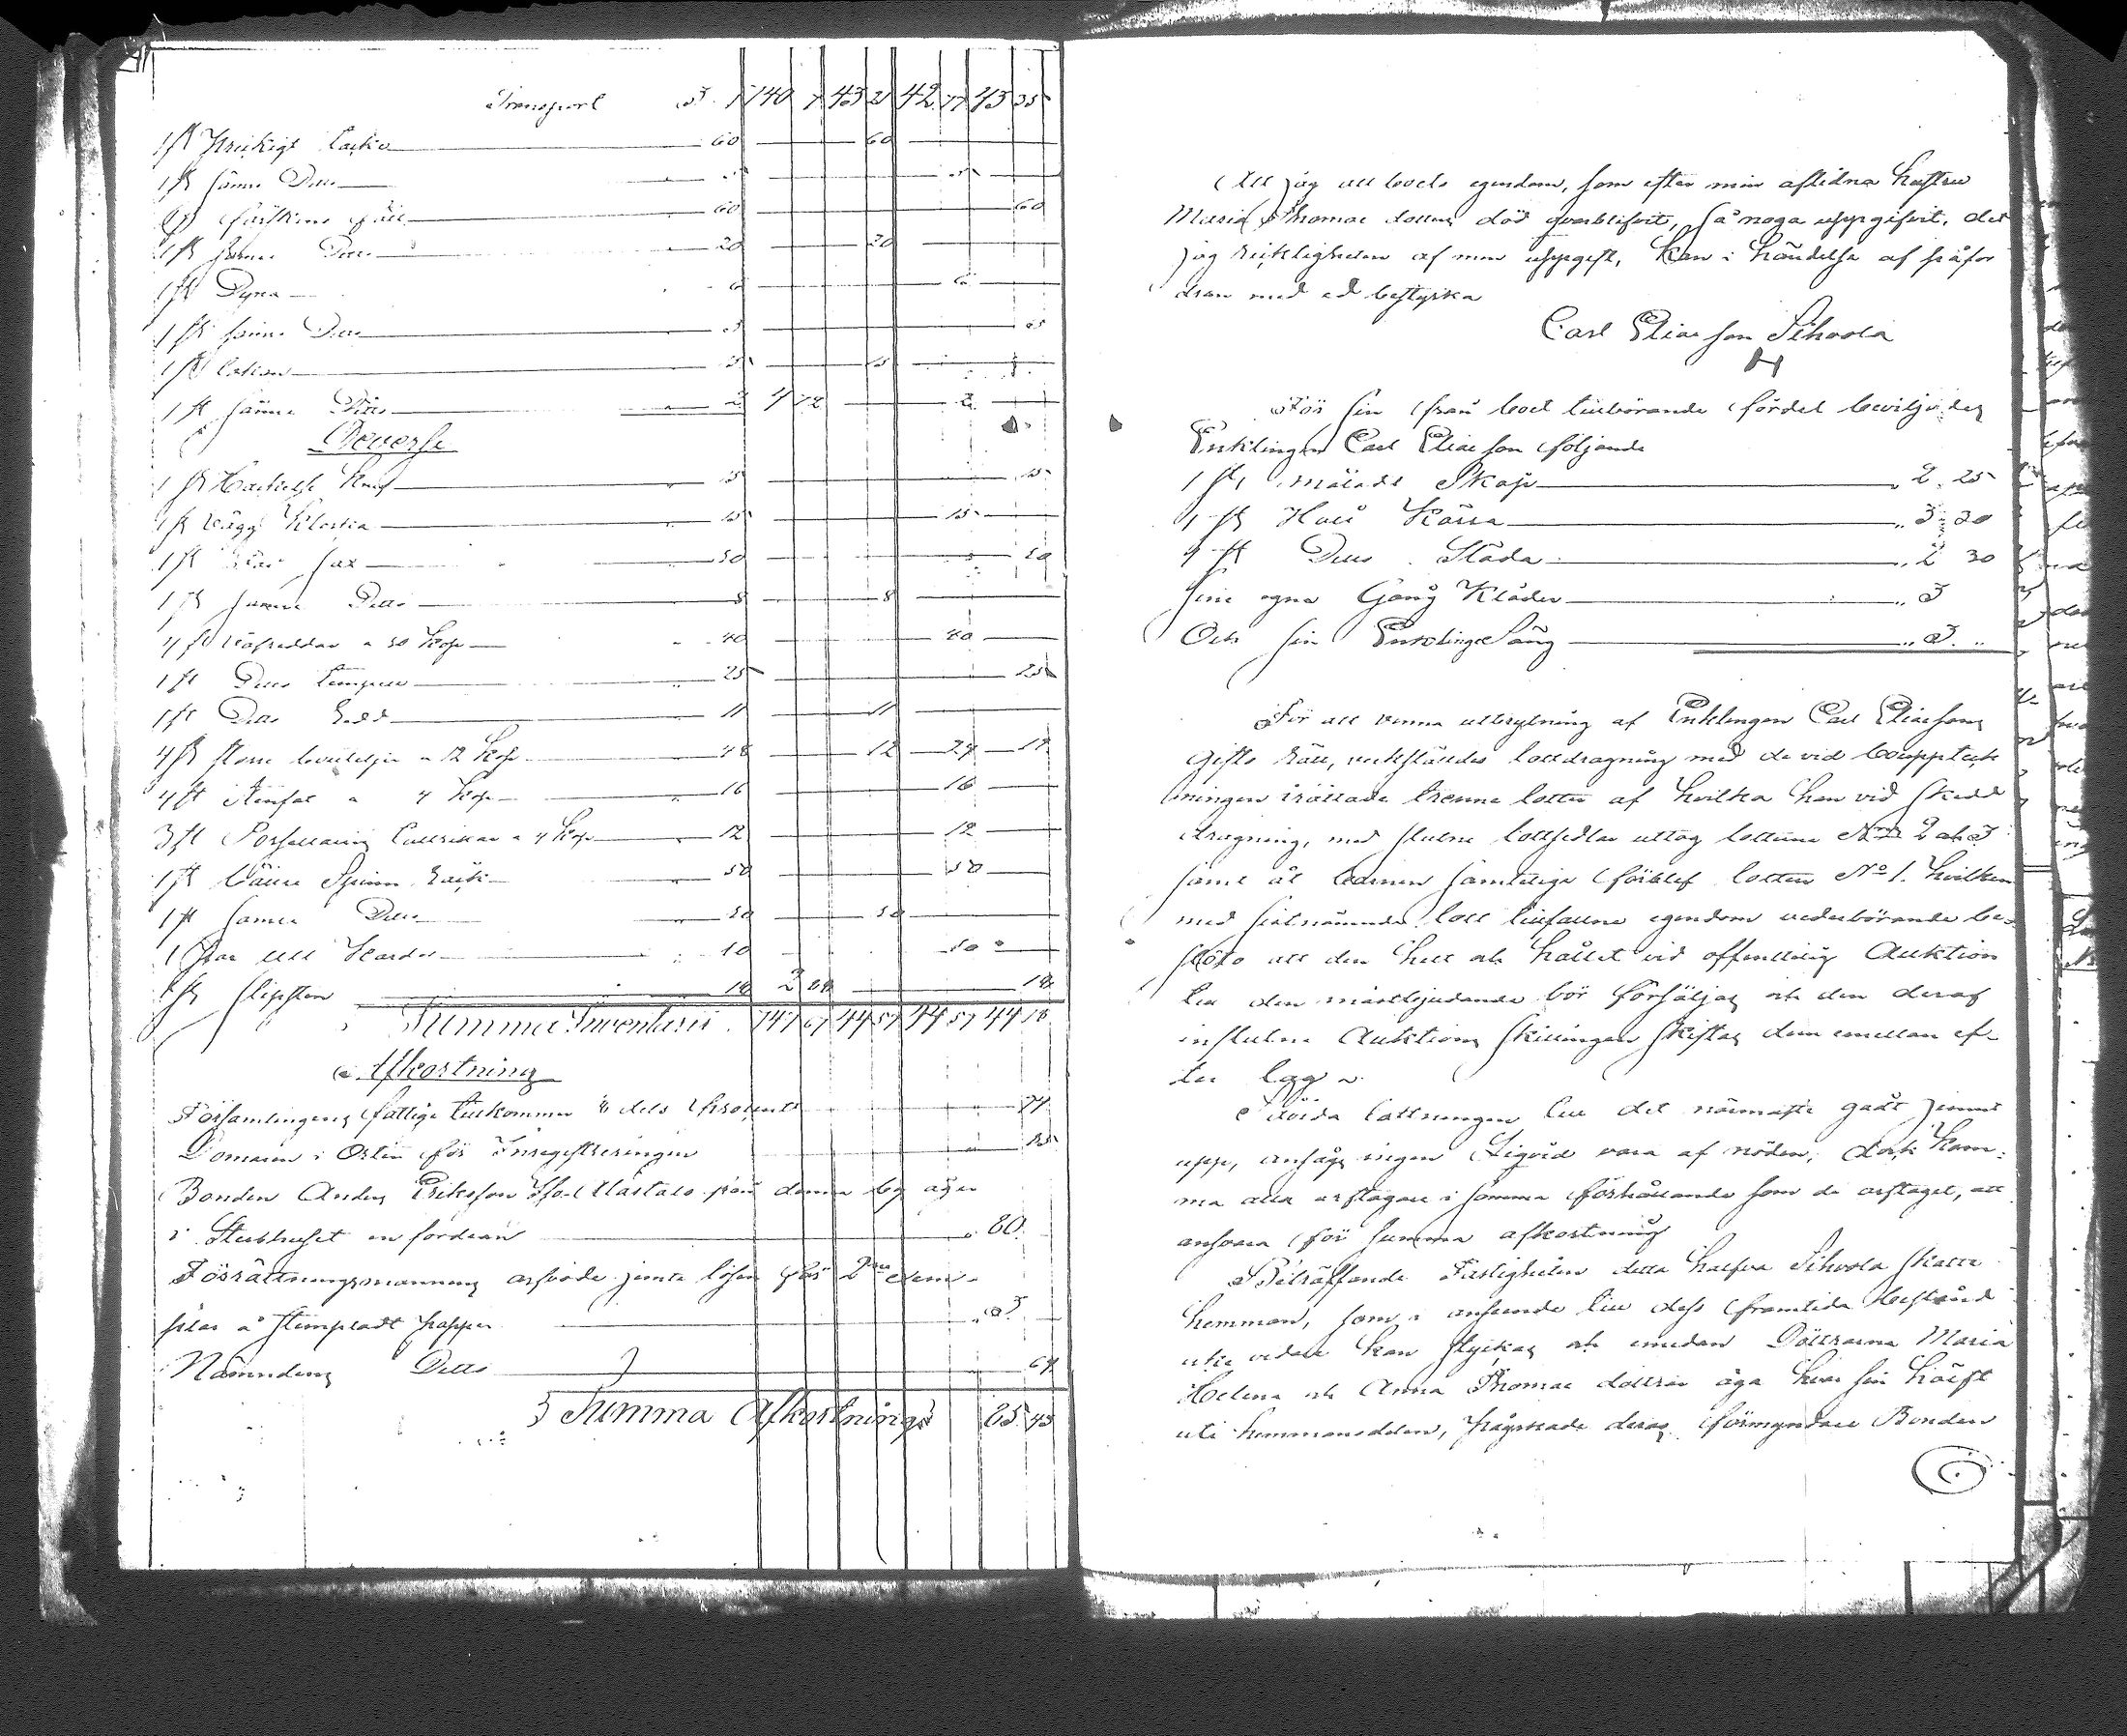 Transport 140 7 43 42 43 35
1 st 60 60
1 st sämre Ditto 5 5
fårskins fäll 60 60
1 st sämre Ditto 20 20
1 st Dyna 6 6
1 st sämre Ditto
1 st 15 15
1 st sämre Ditto 2 4 72 2
Diverse
1 st Hackelse knif 15 15
1 st Vägg Klocka 15 15
1 st sax 50 50
1 st sämre Ditto 8 8
4 st Väfskeddar a 10 Kop 40 40
1 st Ditto 25 25
1 st Ditto 11 11
4 st större bouteljer a 12 Kop 48 12 24 12
4 st Stenfat a 4 Kop 16 16
3 st Porsellains Talrickar a 4 Kop 12 12
1 st bättre Spinn Råck 50 50
1 st sämre Ditto 50 50
1 Par Ull Kardor 10 10
1 st slipsten 18 2 18
Summa Inventarii 147 67 44 51 44 51 44
Afkostning
Församlingens fattige tillkommer 1/8 dels Procent 74
Domaren i Orten för Inregistreringen 15
Bonden Anders Eriksson från denna by äger
i Sterbhuset en fordran 80
Förrättningsmannens arfvode jemte lösen för 2ne exem-
plar å stempladt papper 3
Nämndens Ditto 64
Summa Afkostning 85 43
Att jag all boets egendom, som efter min aflidna hustru
Maria Thomae dotters död qvarblifvit, så noga uppgifvit, det
jag riktigheten af min uppgift, kan i händelse af påfor
dran med ed bestyrka
Carl Eliae son Sihvola
För sin från boet tillhörande fördel beviljades
Enklingen Carl Eliae son följande
1 st måladt Skåp 2 25
1 st Kärra 3 20
1 st Ditto Släda 2 30
sine egna Gång Kläder 3
Och sin Enklinge Säng 3
För att vinna utbrytning af Enklingen Carl Eliaesons
Gifto Rätt, verkställdes lottdragning med de vid bouppteck
ningen inrättade trenne lotter af hvilka han vid skedd
dragning, med slutne lottsedlar uttog lotterne No 2 och 3
samt åt barnen samteliga förblef lotten No 1. hvilken
med sistnämnde lott tillfallne egendom vederbörande be-
slöto att den helt och hållet vid offentelig Auktion
till den mästbjudande bör försäljas och den deraf
influtne Auktions skillingen skiftas dem emellan ef-
ter lag
Då lottningen till det närmaste gådt jemnt
upp, ansågs ingen Liqvid vara af nöden, dock kom-
ma alla arftagare i samma förhållande som de arftaget, att
ansvara för summa afkostning
Beträffande Fastigheten detta halfva Sihvola skatte
hemman, som i anseende till dess framtida bestånd
icke vidare kan styckas och emedan Döttrarna Maria
Helena och Anna Thomae döttrar äga hvar sin häfft
uti hemmansdelen, påyrkade deras förmyndare Bonden